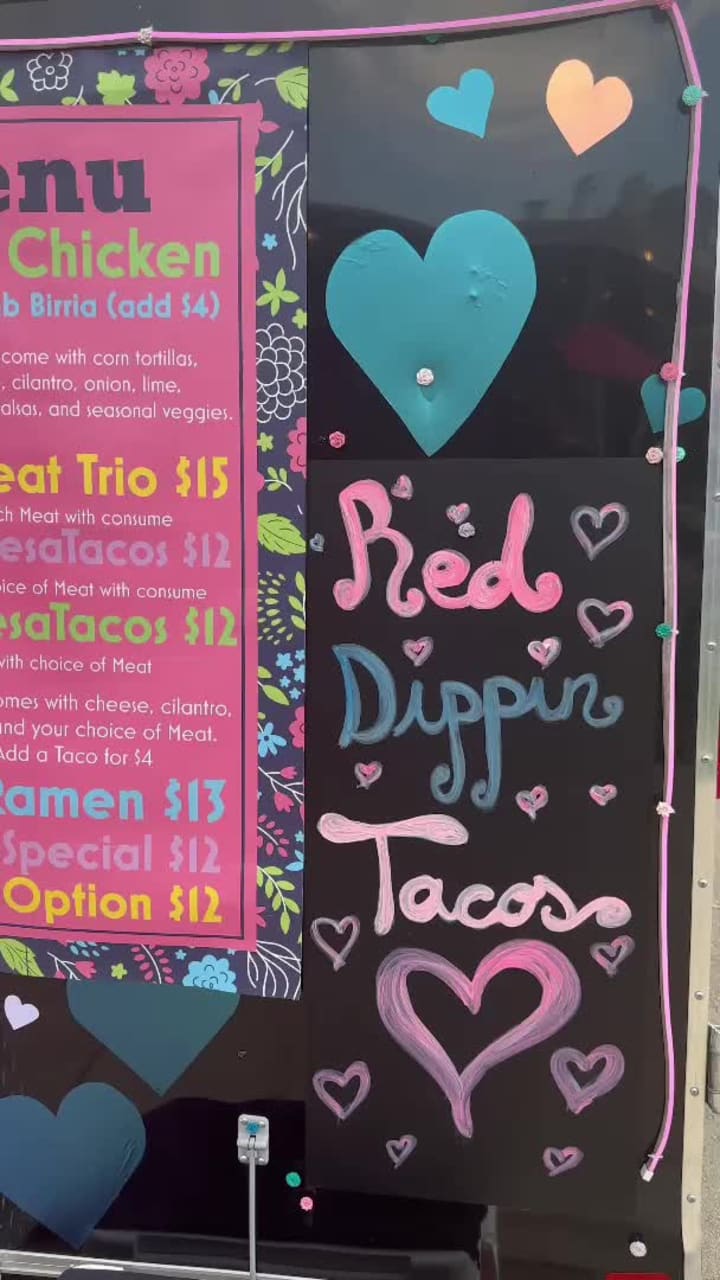 enu
Chicken
b Birria (add $4)
come with corn tortillas,
, cilantro, onion, lime,
alsas, and seasonal veggies.
eat Trio $15
ch Meat with consume
esaTacos $12
oice of Meat with consume
esaTacos $12
with choice of Meat
omes with cheese, cilantro,
and your choice of Meat.
Add a Taco for $4
Ramen $13
Special $12
Option $12
Red
Dippin
Tacos